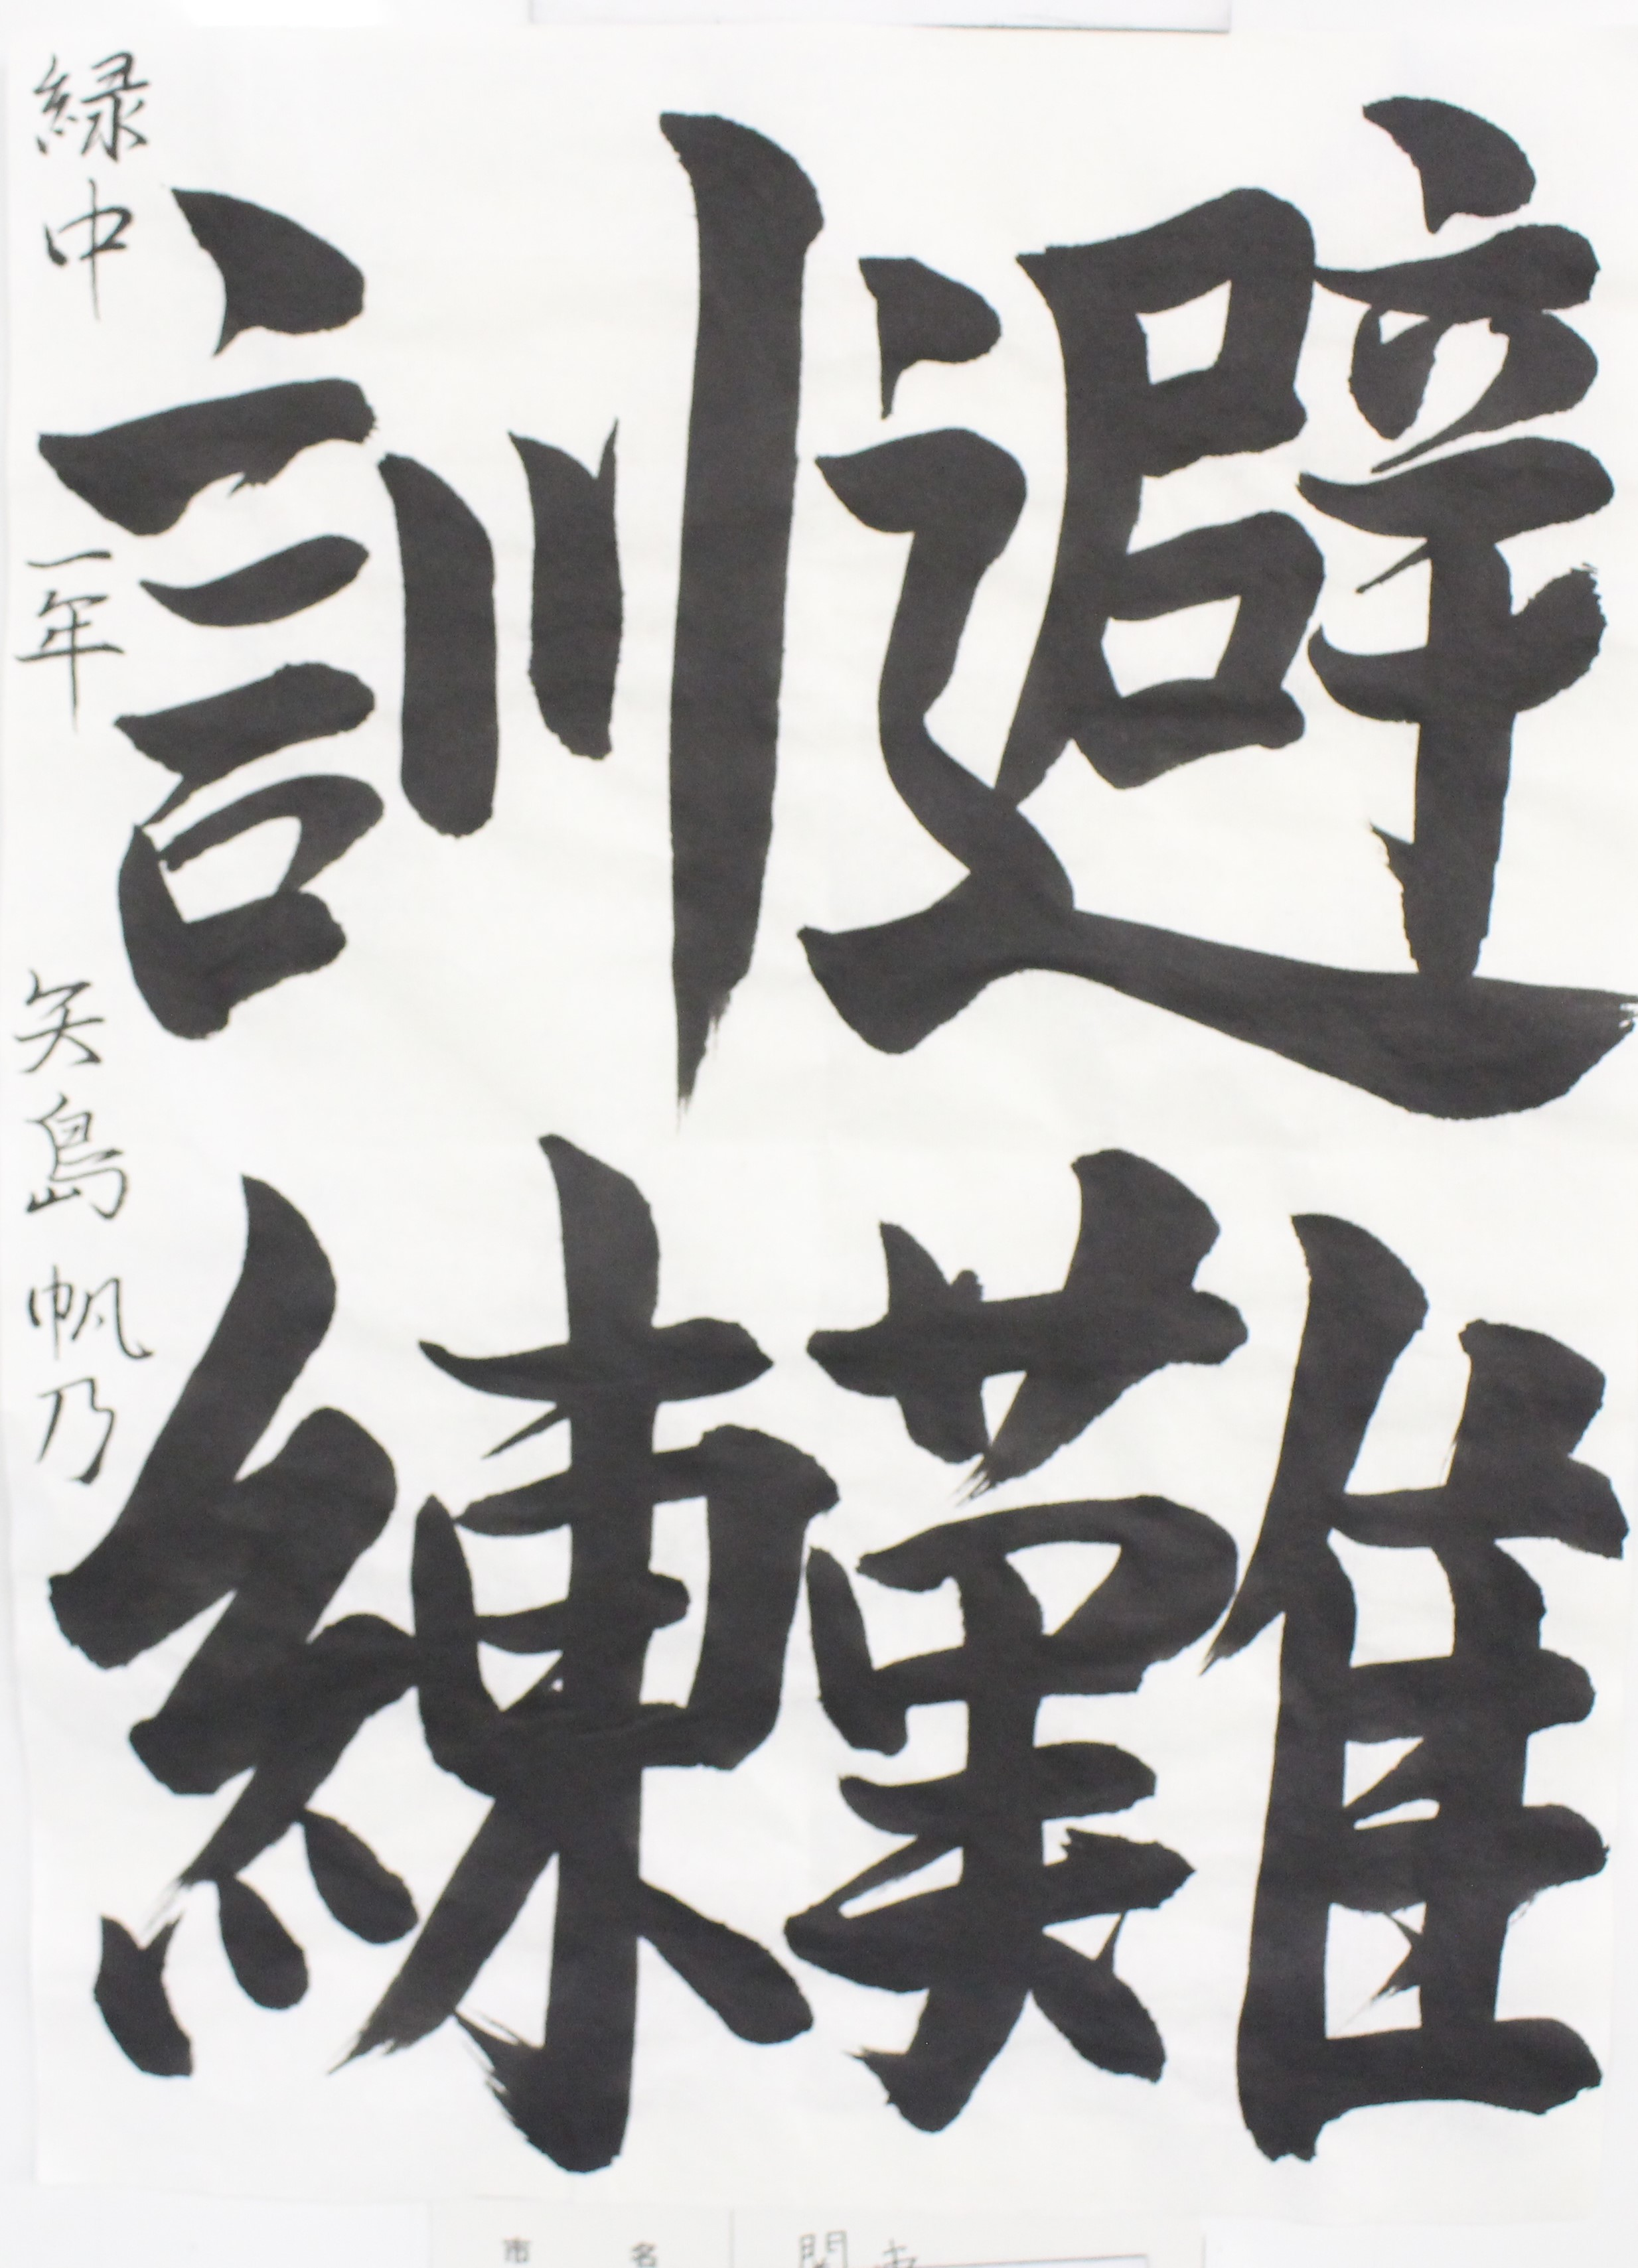 避難
訓練
緑中 一年 矢島帆乃
市名 関市